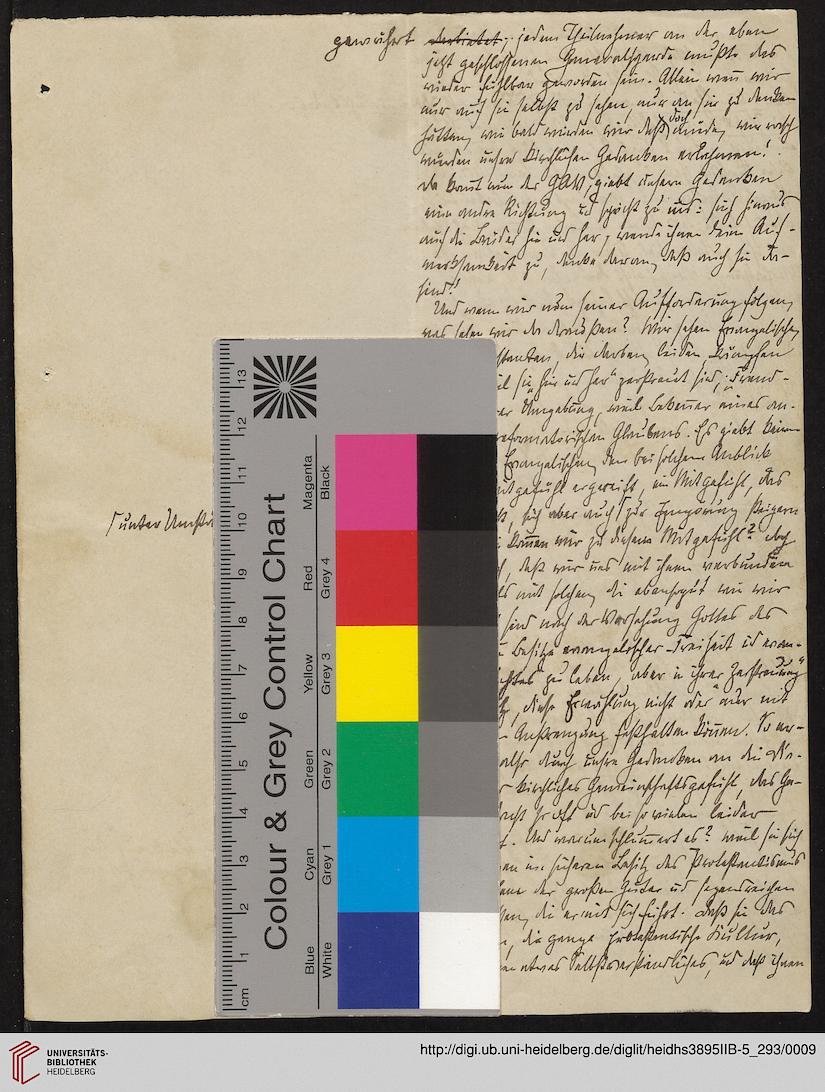 gewährt darbietet; jedem Theilnehmer an der eben
jetzt geschlossenen Generalsynode mußte das
wieder fühlbar geworden sein. Allein wenn wir
nur auf sie selbst zu sehen, nur an sie zu denken
hätten, wie bald würden wir deß doch müde, wie rasch
würden unsre kirchlichen Gedanken erlahmen!
Da kommt nun der GAV, giebt unsern Gedanken
eine andre Richtung und spricht zu uns: sieh hinaus
auf die Brüder hie und her, wende ihnen deine Auf-
merksamkeit zu, denke daran, daß auch sie da
sind!
Und wenn wir nun seiner Aufforderung folgen,
was sehen wir da draußen? Wir sehen Evangelische,
stanten, die darben, leiden, kämpfen
il sie "hie und her" zerstreut sind, Fremd-
er Umgebung, weil Bekenner eines an-
reformatorischen Glaubens. Es giebt keinen
Evangelischen, den bei solchem Anblick
itgefühl ergreift, ein Mitgefühl, das
sich aber auch zur Empörung steigern
unter Umstä
kommen wir zu diesem Mitgefühl?
daß wir uns mit ihnen verbunden
mit solchen, die ebensogut wie wir
sind nach der Vorsehung Gottes des
Besitze evangelischer Freiheit und evan-
zu leben, aber in ihrer "Zerstreuung"
diese nicht oder nur mit
Anstrengung festhalten können. So er-
also durch unsre Gedanken an die Dia-
kirchliches Gemeinschaftsgefühl, das Ge-
so oft und bei so vielen leider
Und warum schlummert es? weil sie sich
en im sicheren Besitz des Protestantismus
der großen Güter und segensreichen
die er mit sich führt. Daß sie das
die ganze protestantische Kultur,
etwas Selbstverständliches, und daß ihnen
Colour & Grey Control Chart
Blue Cyan Green Yellow Red Magenta
White Grey 1 Grey 2 Grey 3 Grey 4 Black
cm 1 2 3 4 5 6 7 8 9 10 11 12 13
UNIVERSITÄTS-
BIBLIOTHEK
HEIDELBERG
http://digi.ub.uni-heidelberg.de/diglit/heidhs3895IIB-5_293/0009